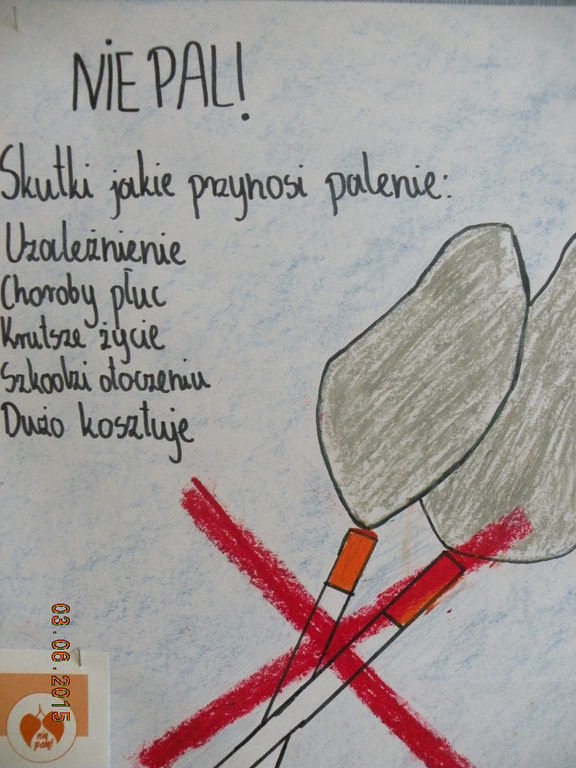 NIE PAL!
Skutki jakie przynosi palenie:
Uzależnienie
Choroby płuc
Krutsze życie
Szkodzi otoczeniu
Dużo kosztuje
03.06.2015
nie
palę!